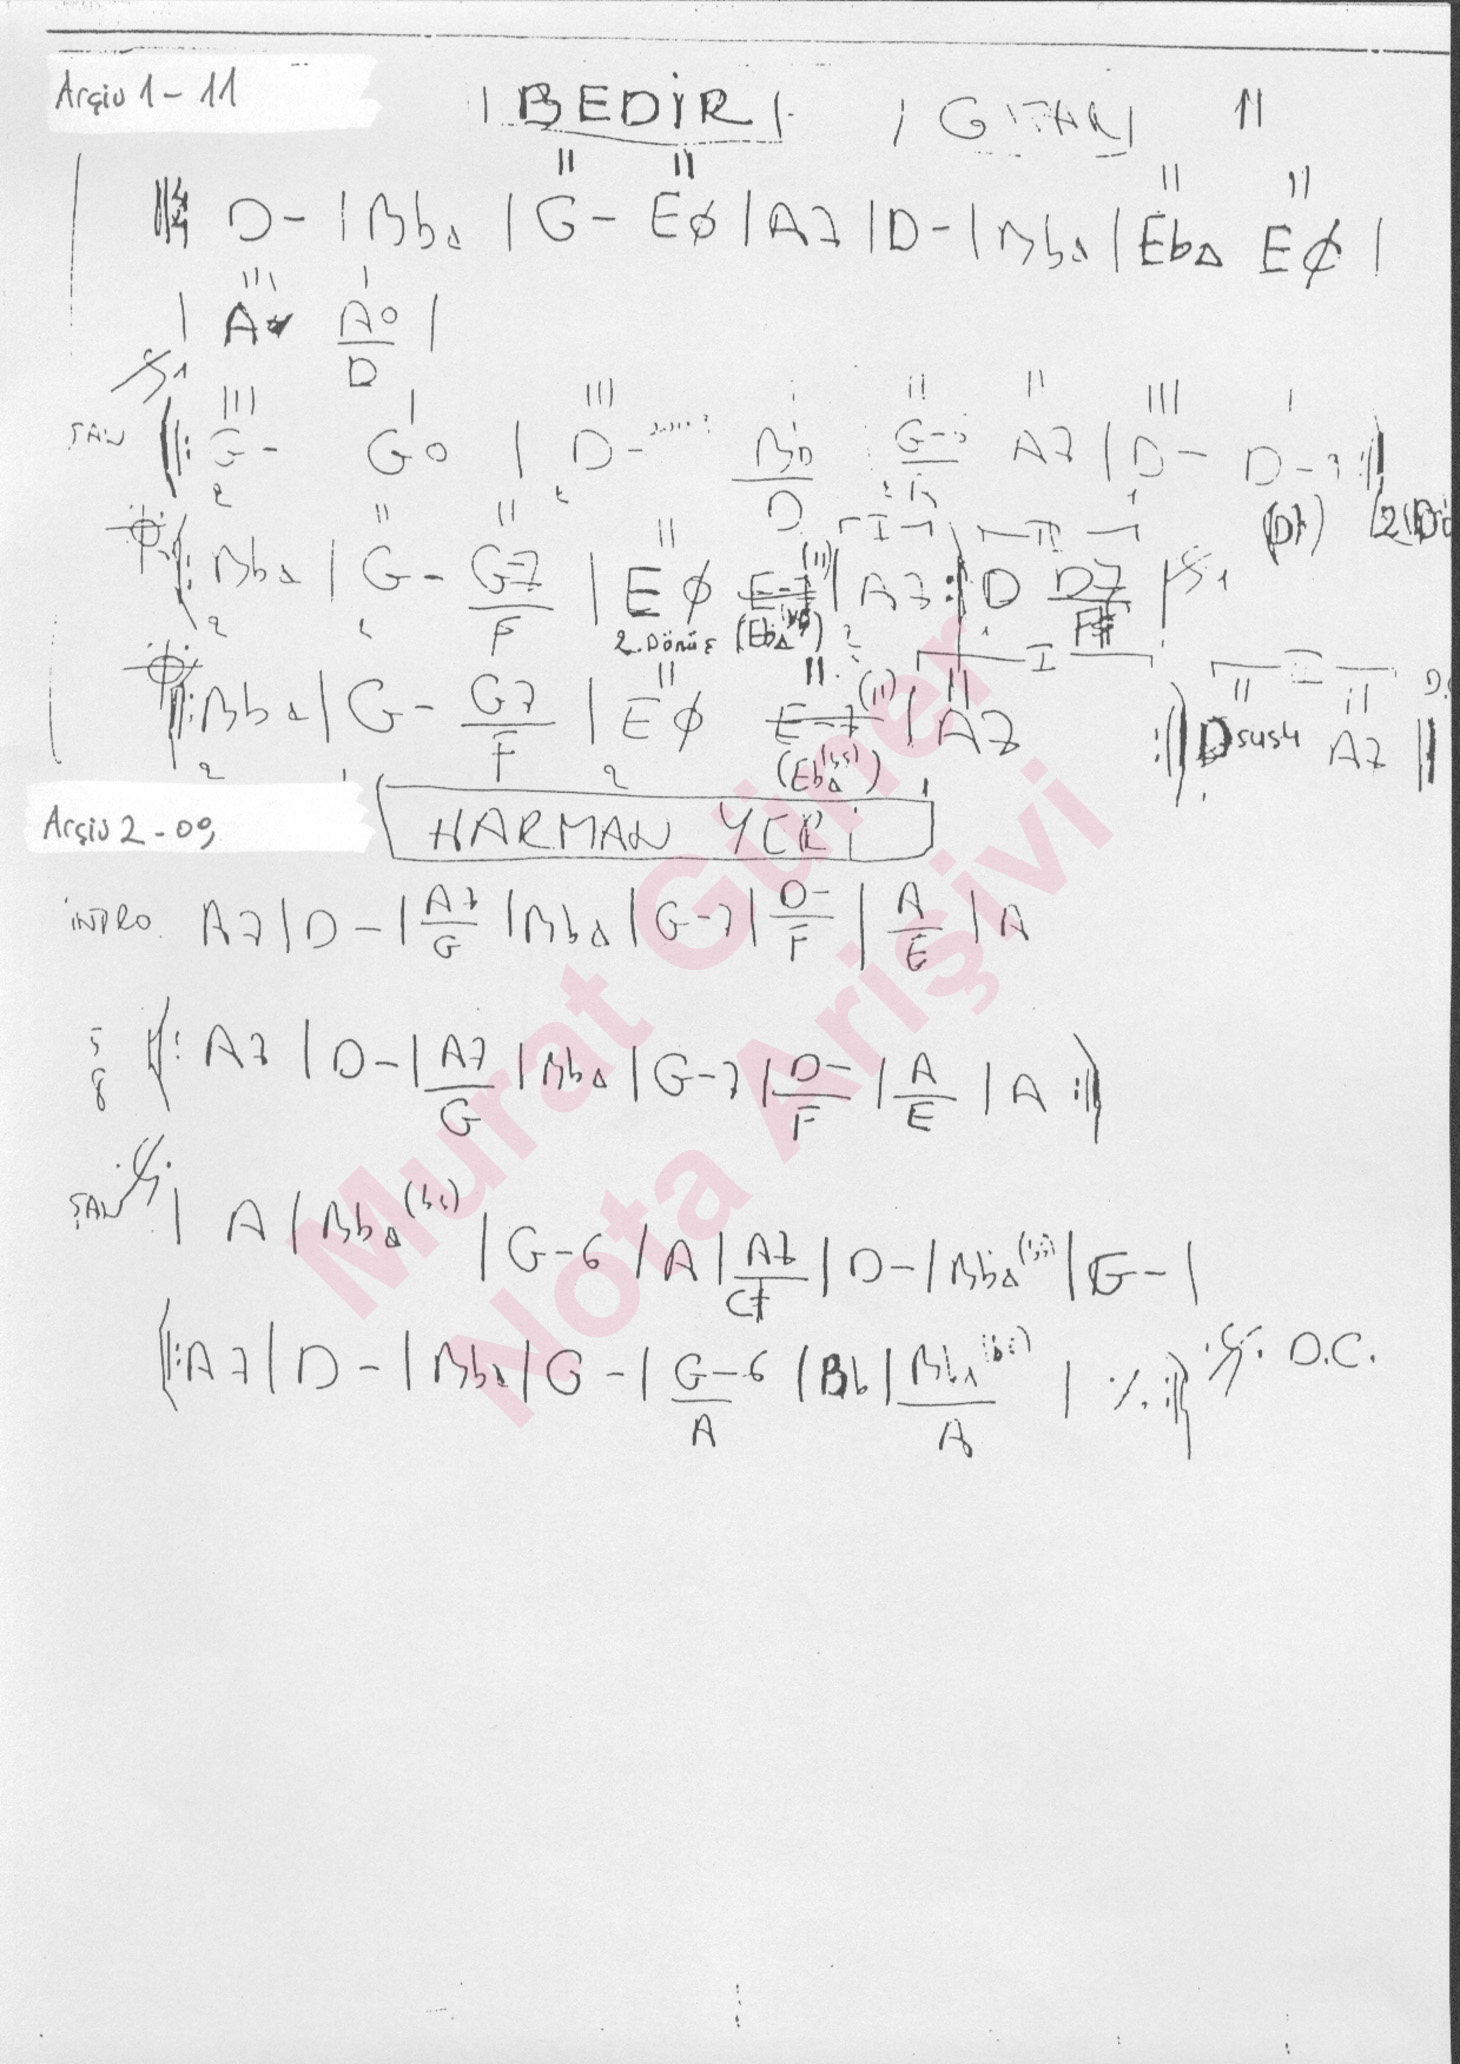 Arşiv 1 - 11
| BEDİR | | GİTAR | 11
|| 4/4 D- | BbΔ | G- EØ | A7 | D- | BbΔ | EbΔ EØ |
| A A°/D |
ŞAN ||: G- G° | D- A7 | D- D-7 :||
(D7)
||: BbΔ | G- G-7/F | EØ E-7 | A7 :|| D D7/F# |
2. Dönüş (EbΔ)
||: BbΔ | G- G7/F | EØ E-7 (11) | A7 :|| Dsus4 A7 ||
(EbΔ)
Arşiv 2 - 09
HARMAN YERİ
İNTRO A7 | D- | A7/G | BbΔ | G-7 | D-/F | A/E | A
5/8 ||: A7 | D- | A7/G | BbΔ | G-7 | D-/F | A/E | A :||
ŞAN | A | BbΔ(b5) | G-6 | A | A7/C# | D- | BbΔ(b5) | G- |
||: A7 | D- | BbΔ | G- | G-6/A | Bb | BbΔ(b5)/A | % :|| D.C.
Murat Güner
Nota Arişivi